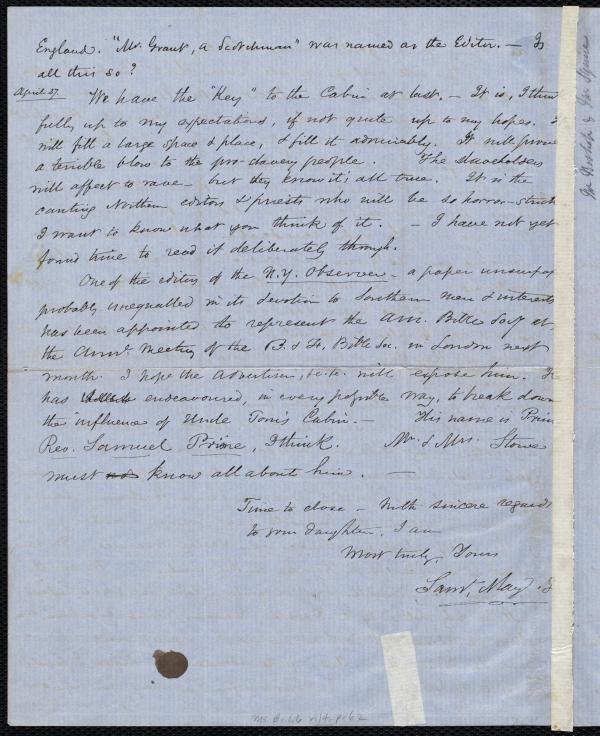 England. "Mr. Grant, a Scotchman" was named as the Editor. — Is
all this so?
April 27. We have the "Key" to the Cabin at last. — It is, I think
fully up to my expectations, if not quite up to my hopes. I
will fill a large space & place, & fill it admirably. It will prove
a terrible blow to the pro-slavery people. The slaveholders
will affect to rave — but they know it's all true. It is the
canting Northern editors & priests who will be so horror-struck
I want to know what you think of it. — I have not yet
found time to read it deliberately through.
One of the editors of the N.Y. Observer — a paper unsurpas
probably unequalled in its devotion to Southern men & interests
has been appointed to represent the Am. Bible Socy at
the Annl. Meeting of the B. & Fr. Bible Soc. in London next
month. I hope the Advertiser, &c. &c. will expose him. He
has endeavoured, in every possible way, to break down
the influence of Uncle Tom's Cabin. — His name is Prim
Rev. Samuel Prime, I think. Mr. & Mrs. Stowe
must not know all about him. —
Time to close — With sincere regards
to your daughter, I am
Most truly, Yours
Saml. May, Jr
Ms. B.1.6 v.4, p. 62